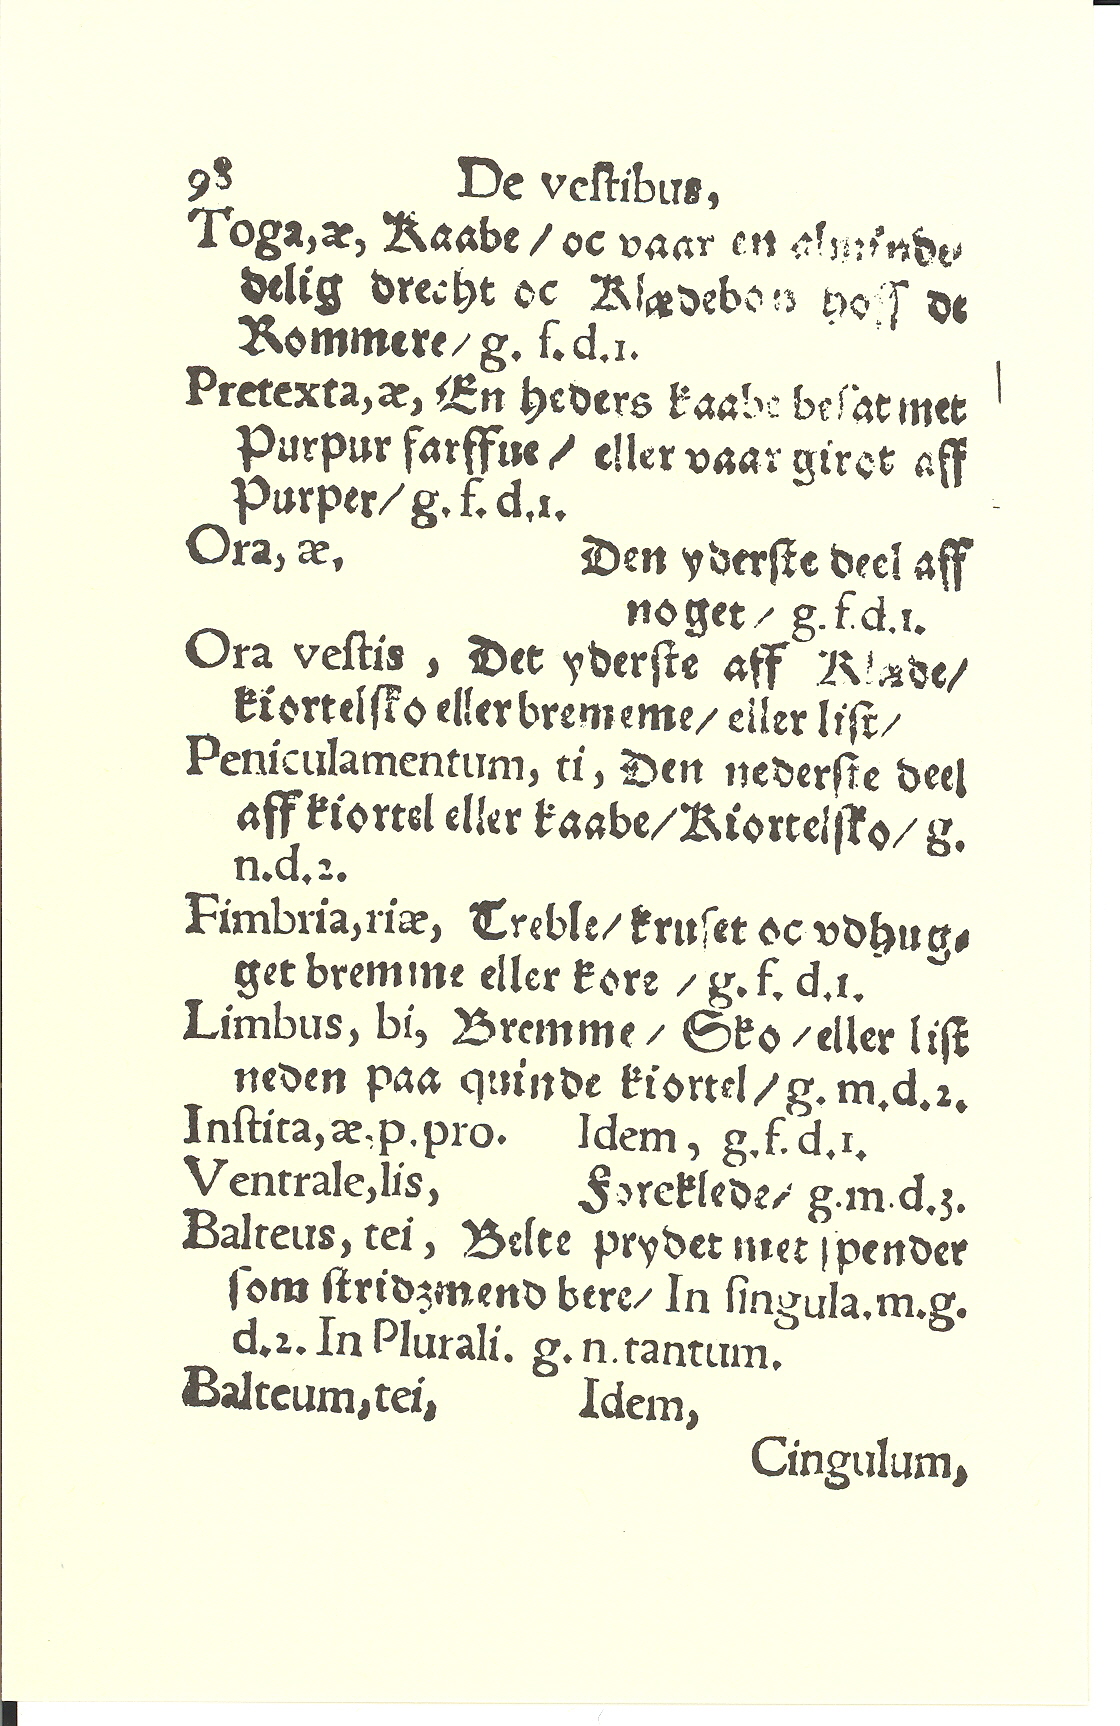 98 De veſtibus,
Toga,æ, Kaabe / oc vaar en alminde
delig drecht oc Klædebon hoſſ de
Rommere / g. f.d.1.
Pretexta,æ, En heders kaabe beſat met
Purpur farffue / eller vaar girot aff
Purper / g. f. d.1.
Ora, æ, Den yderſte deel aff
noget / g. f.d.1.
Ora veſtis , Det yderſte aff Klæde /
kiortelſko eller brememe / eller liſt /
Peniculamentum, ti , Den nederſte deel
aff kiortel eller kaabe / Kiortelſko / g.
n.d.2.
Fimbria,riæ, Treble / kruſet oc vdhug⸗
get bremme eller kore / g. f. d.1.
Limbus, bi, Bremme / Sko / eller liſt
neden paa quinde kiortel / g. m.d.2.
Inſtita,æ,p.pro. Idem , g.f.d.1.
Ventrale,lis, Forcklede / g.m.d.3.
Balteus, tei , Belte prydet met ſpender
ſom ſtridzmend bere / In ſingula.m.g.
d.2. In Plurali. g. n. tantum.
Balteum,tei, Idem,
Cingulum,